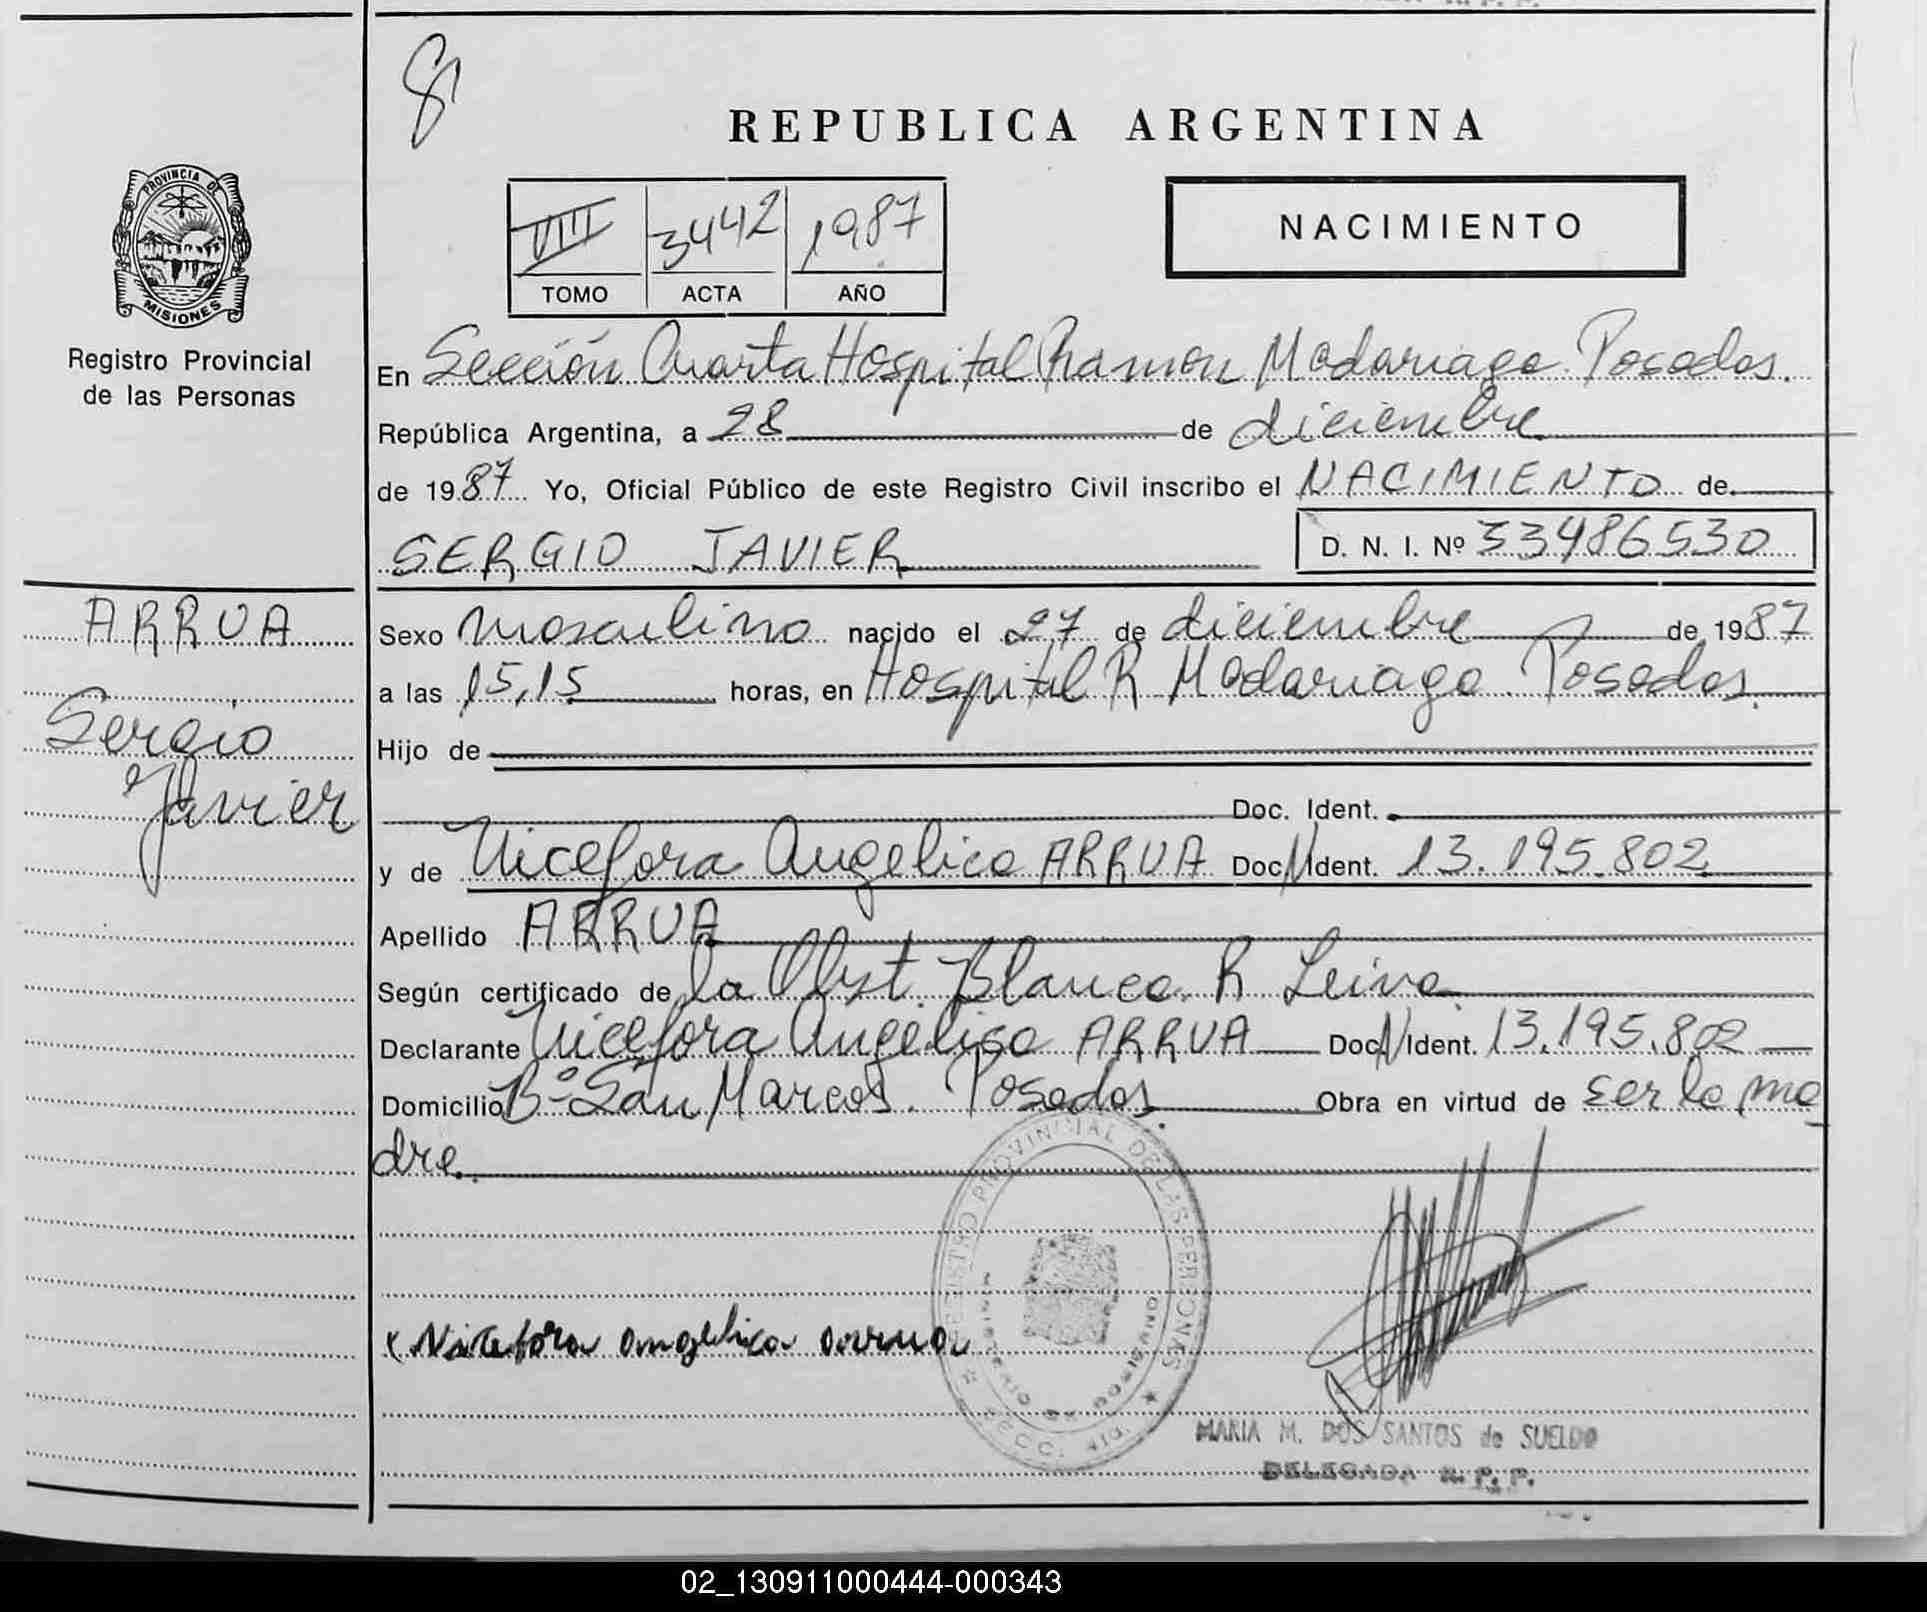 8
REPUBLICA ARGENTINA
PROVINCIA DE
MISIONES
Registro Provincial
de las Personas
VIII 3442 1987
TOMO ACTA AÑO
NACIMIENTO
En Sección Cuarta Hospital Ramon Madariaga. Posadas.
República Argentina, a 28 de diciembre
de 1987 Yo, Oficial Público de este Registro Civil inscribo el NACIMIENTO de
SERGIO JAVIER D. N. I. Nº 33486530
ARRUA
Sergio
Javier
Sexo masculino nacido el 27 de diciembre de 1987
a las 15,15 horas, en Hospital R Madariaga. Posadas.
Hijo de
Doc. Ident.
y de Nicefora Angelica ARRUA Doc N Ident. 13.195.802
Apellido ARRUA
Según certificado de la Obst. Blanca. R Leiva.
Declarante Nicefora Angelica ARRUA Doc. N Ident. 13.195.802
Domicilio Bº San Marcos. Posadas. Obra en virtud de ser la ma
dre.
REGISTRO PROVINCIAL DE LAS PERSONAS
MINISTERIO DE GOBIERNO
SECC. 4ta.
x Nicefora angelica arrua
MARIA M. DOS SANTOS de SUELDO
DELEGADA R. P. P.
02_130911000444-000343